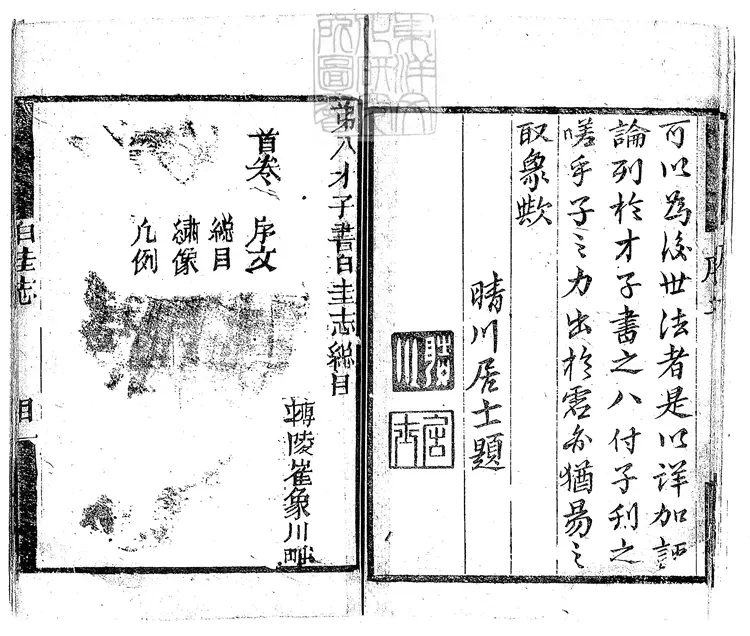 可以為後世法者是以詳加評
論列於才子書之八付子刋之
嗟乎子之力出於
猶易之
取象歟
晴川居士題
晴川
居士
第八才子書白圭志総目
首卷
序文
総目
繡像
凡例
陵崔象川
白圭志
目一
東洋文化研究所圖書